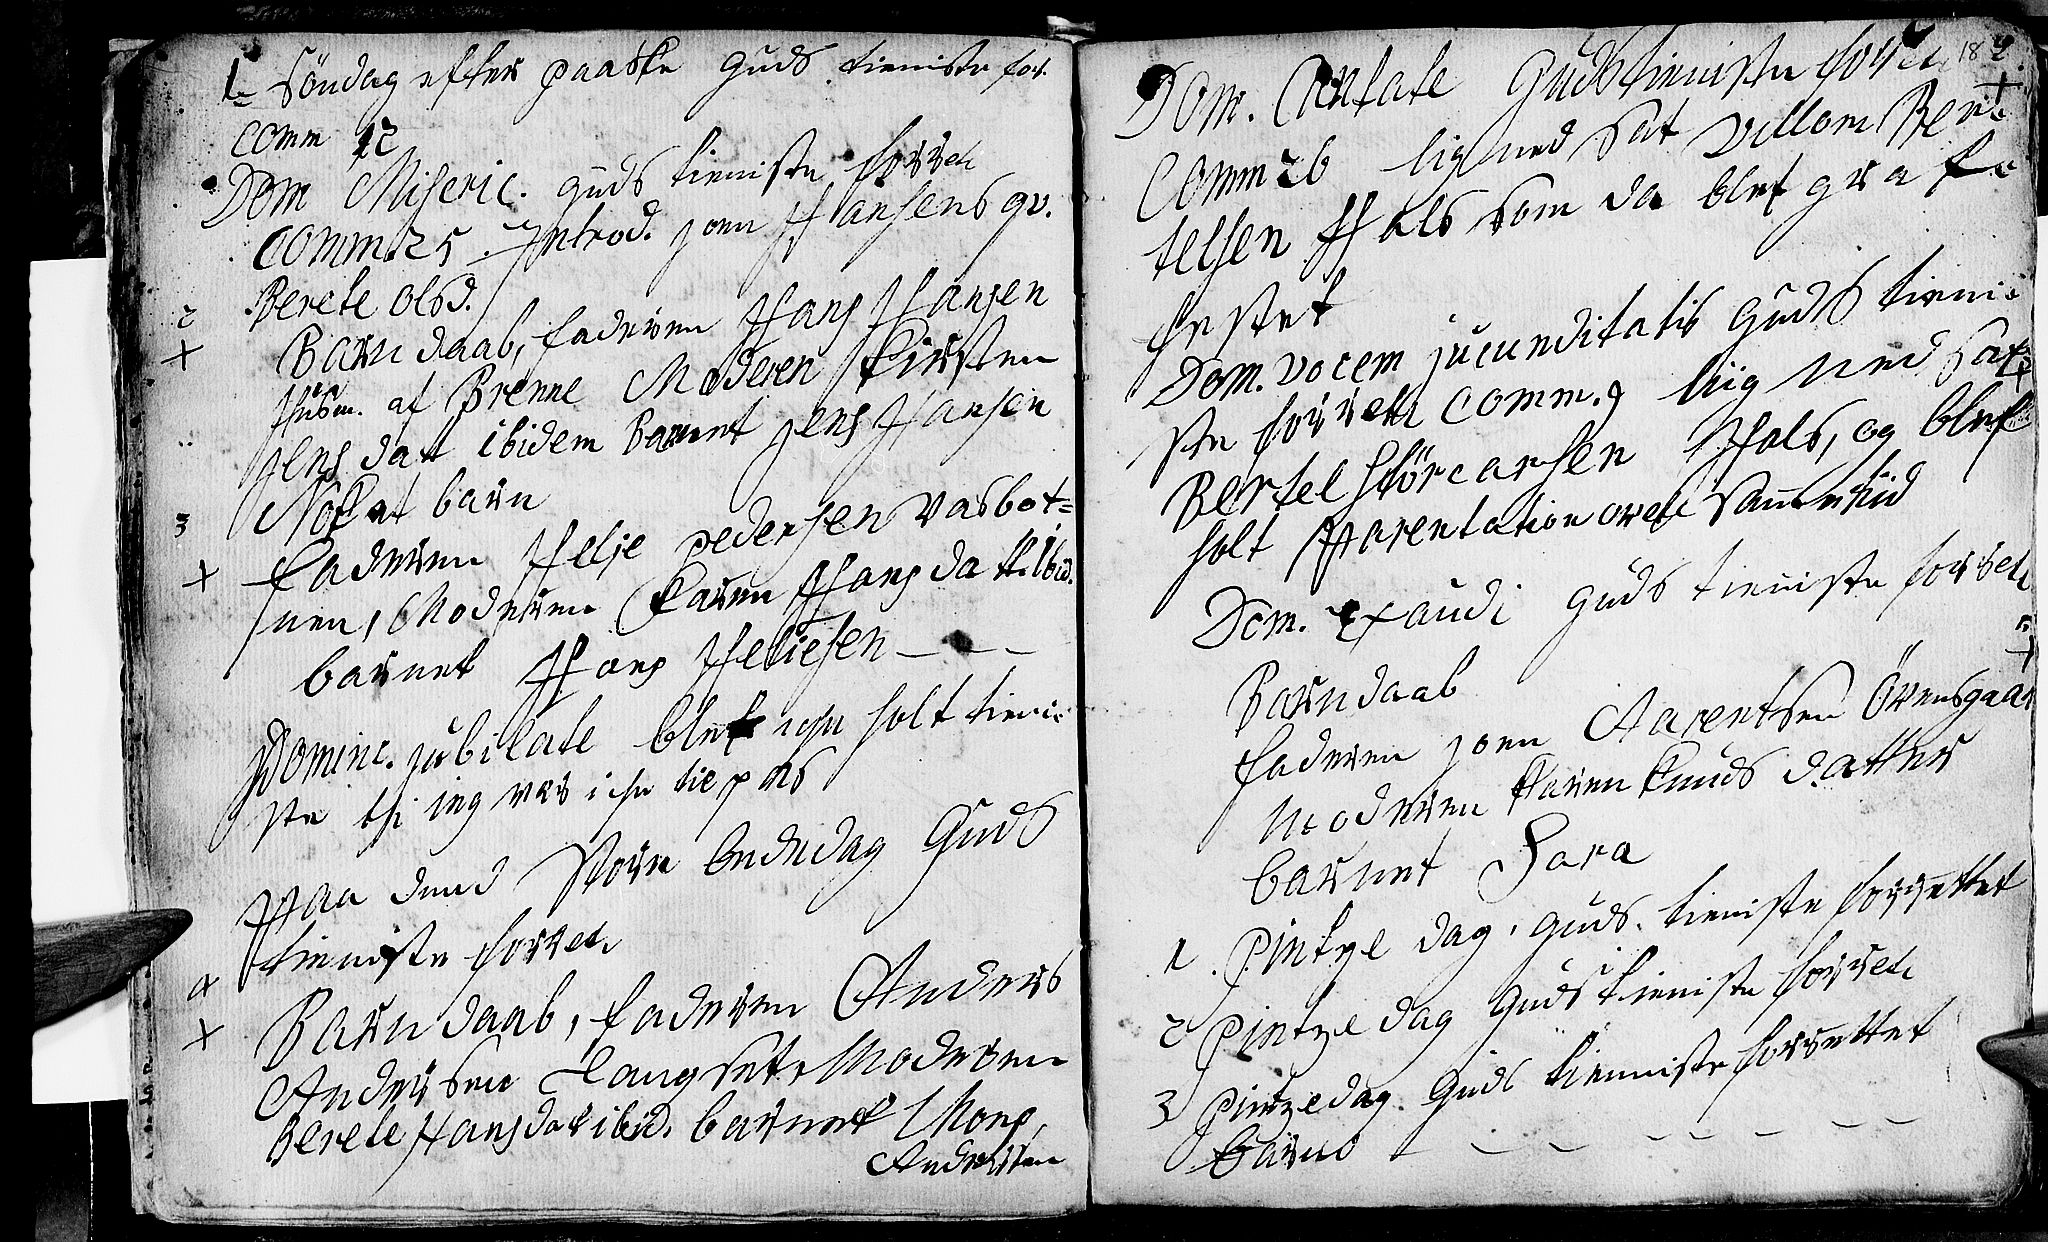 1. söndag efter paaske Guds tieniste for.
comm 12
Dom Miseric. guds tieniste forret.
comm. 25. Introd. joen Hansens qv.
Berete Olsd.
2
+
Barn daab, faderen Hans Hansen
Husm. af Brenne Moderen Kirsten
Jens datt ibidem Barnet jens Hansen
Nok et barn
3
+
faderen Helje pedersen Vasbot=
nen, Moderen Karen Hans datt. ibid.
barnet Hans Heliesen
Dominc. jubilate blef icke holt tieni=
ste thi jeg var icke tilpas
Paa dend store bededag Guds
tieniste forret.
4
+
Barn daab, faderen Anders
Andersen Langset, Moderen
Berete Hans datt ibid. barnet Mons
Andersen
182.
Dom. Cantate Gudstieniste forret.
+
Comm 26 lig ned sat Villom Ben=
telsen Hals som da blef gra f=
festet
Dom. vocem jucunditatis Guds tieni=
ste forrett comm. 9 liig ned sat
+
Bertel Störcarsen Hals, og blef
holt Parentation over samme tid
Dom. Exaudi guds tieniste forret.
5
+
Barn daab
faderen joen Aarentsen Övensgaar
moderen Karen Knuds datter
barnet Sara
1. pintze dag, guds tieniste forrettet
2 pintze dag Guds tieniste forret.
3 pintzedag. Guds tienniste forrettet
barno